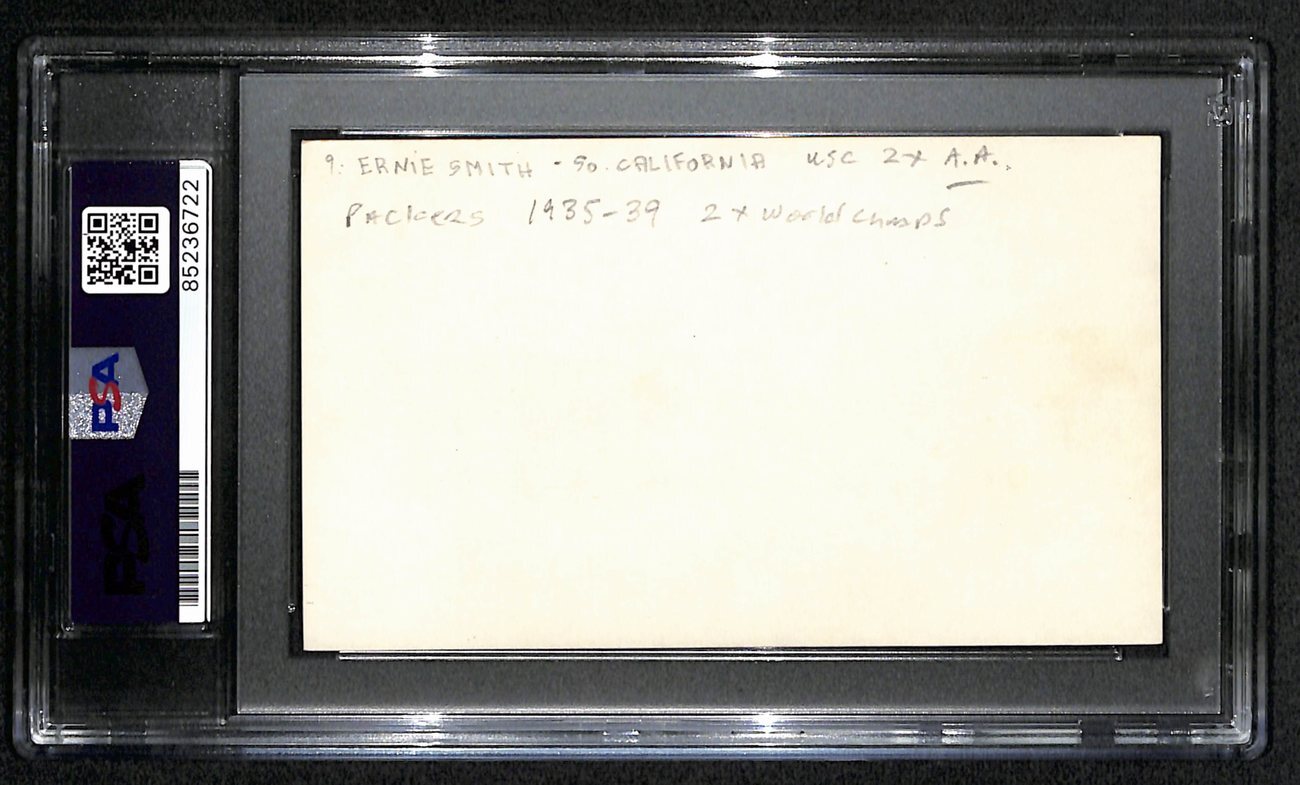 9. ERNIE SMITH - So. CALIFORNIA USC 2x A.A.
PACkers 1935-39 2x World Champs
85236722
PSA
PSA